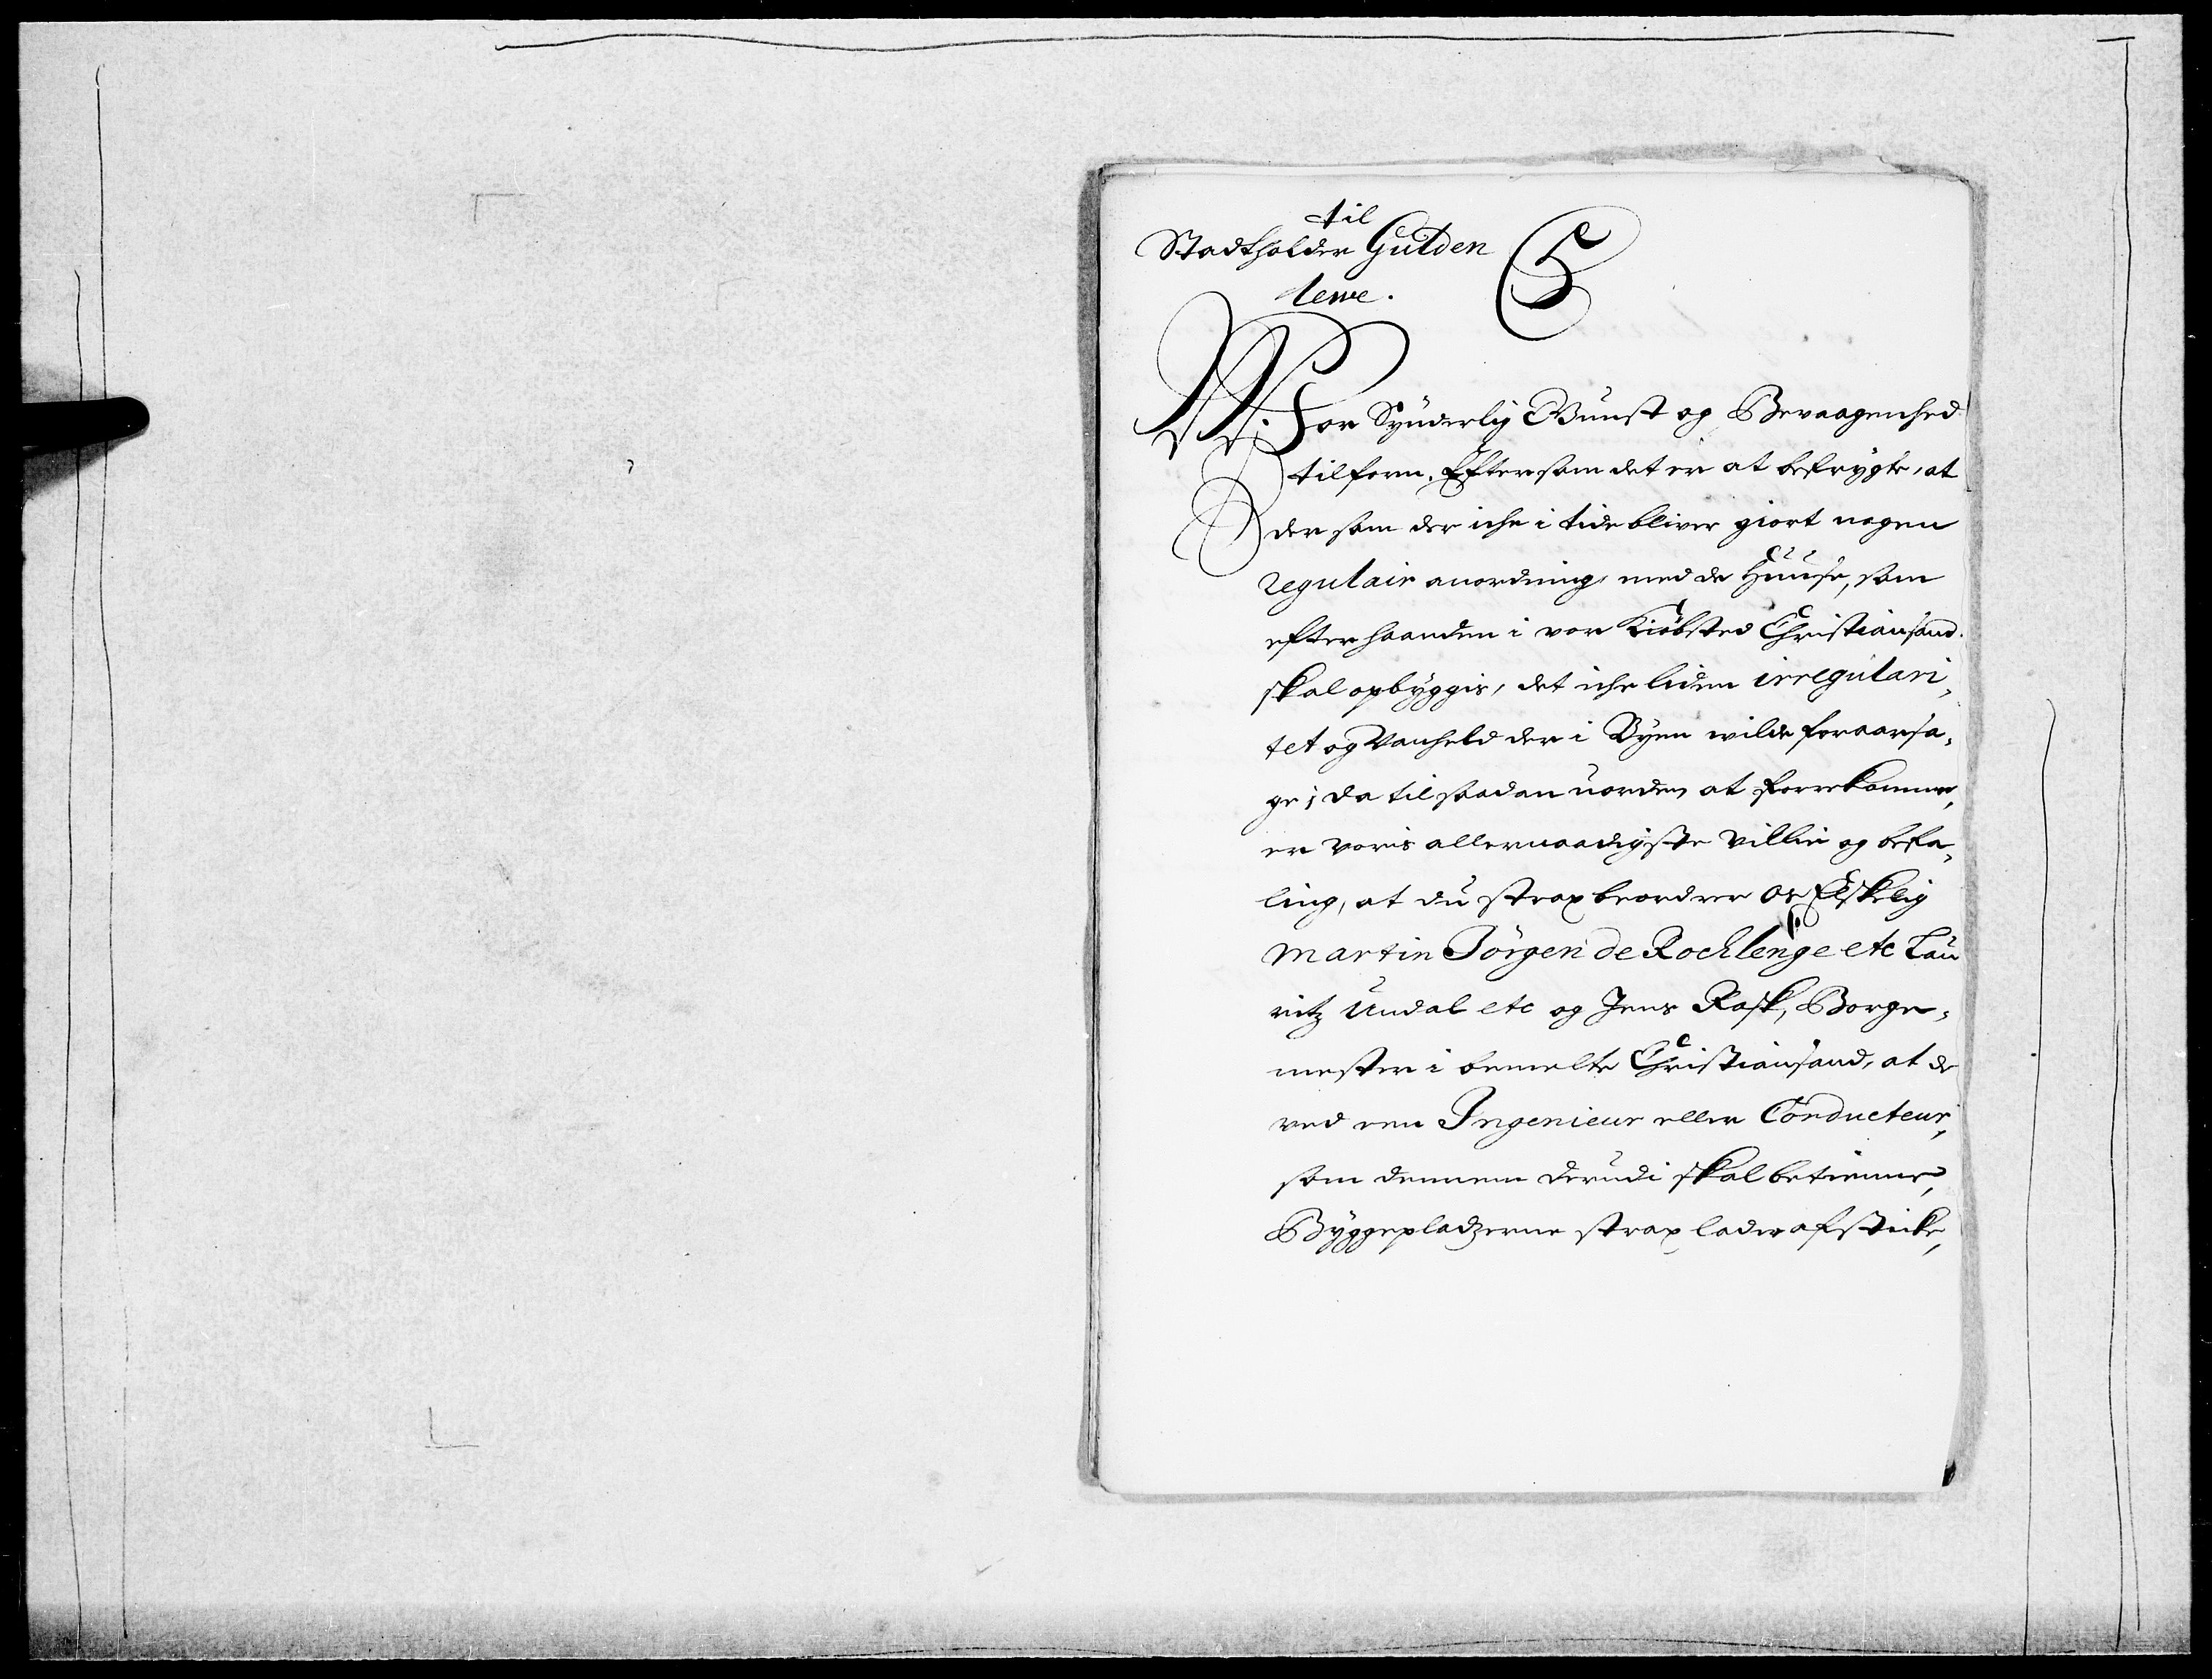 til
Stadtholder Gulden
lewe.
C5
W. For Synderlig Gunst og Bevaagenhed
tilforn. Eftersom det er at befrygte, at
der som der iche i tide bliver giort nogen
regulair anordning, med de Huuse, som
efterhaanden i vor Kiöbsted Christiansand
skal opbyggis, det iche liden irregulari-
tet og Vanheld der i Byen wilde foraarsa-
ge; Da til saadan uorden at forrekomme,
er voris allernaadigste villie og befa-
ling, at du strax beordrer Os Elskelig
Martin Jörgen de Rochlenge etc Lau
ritz Undal etc og Jens Rask, Borge-
mester i bemelte Christiansand, at de
ved een Ingenieur eller Conducteur,
som dennem derudi skal betienne,
Byggepladzerne strax lader afsticke,